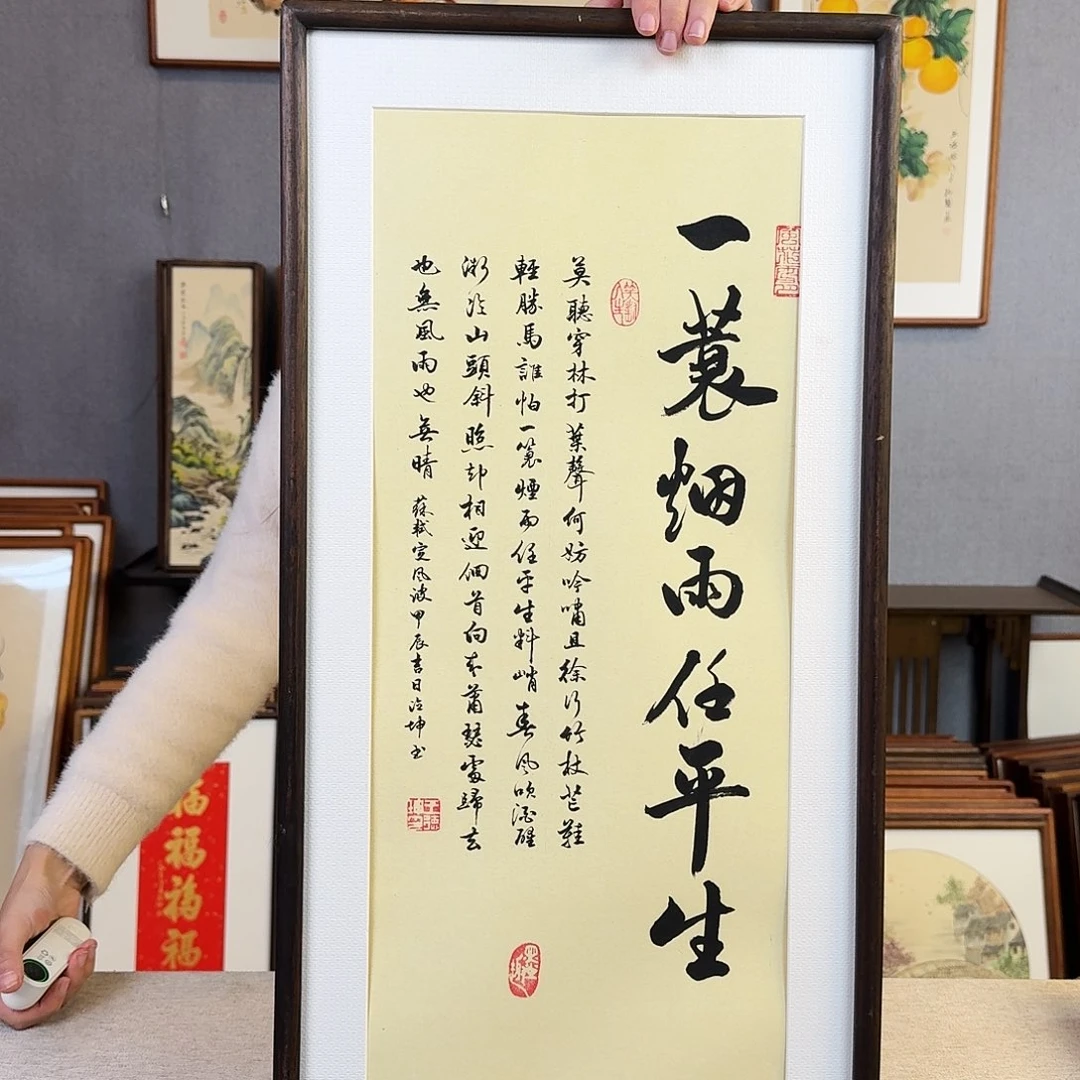 一蓑烟雨任平生
莫聽穿林打葉聲何妨吟嘯且徐行竹杖芒鞋
輕勝馬誰怕一蓑煙雨任平生料峭春風吹酒醒
微冷山頭斜照却相迎回首向來蕭瑟處歸去
也無風雨也無晴 蘇軾定風波甲辰吉日冶坤书
福
福
福
福